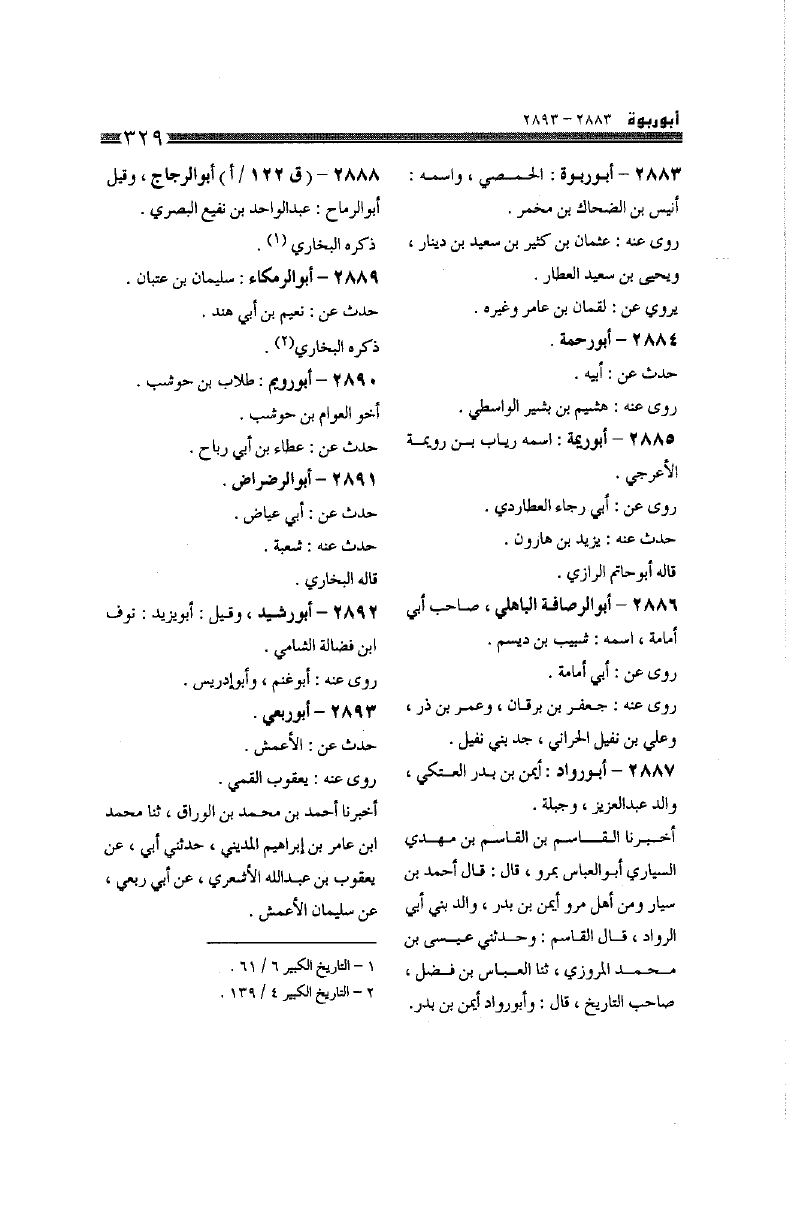 أبوربوة ٢٨٨٣ – ٢٨٩٣
٣٢٩
٢٨٨٣ – أبوربوة : الحمصي ، واسمه :
أنيس بن الضحاك بن مخمر .
روى عنه : عثمان بن كثير بن سعيد بن دينار ،
ويحيى بن سعيد العطار .
يروي عن : لقمان بن عامر وغيره .
٢٨٨٤ – أبورحمة .
حدث عن : أبيه .
روى عنه : هشيم بن بشير الواسطي .
٢٨٨٥ – أبوريمة : اسمه رياب بن رويمة
الأعرجي .
روى عن : أبي رجاء العطاردي .
حدث عنه : يزيد بن هارون .
قاله أبوحاتم الرازي .
٢٨٨٦ – أبوالرصافة الباهلي ، صاحب أبي
أمامة ، اسمه : شبيب بن ديسم .
روى عن : أبي أمامة .
روى عنه : جعفر بن برقان ، وعمر بن ذر ،
وعلي بن نفيل الحراني ، جد بني نفيل .
٢٨٨٧ – أبورواد : أيمن بن بدر العتكي ،
والد عبدالعزيز ، وجبلة .
أخبرنا القاسم بن القاسم بن مهدي
السياري أبوالعباس بمرو ، قال : قال أحمد بن
سيار ومن أهل مرو أيمن بن بدر ، والد بني أبي
الرواد ، قال القاسم : وحدثني عيسى بن
محمد المروزي ، ثنا العباس بن فضل ،
صاحب التاريخ ، قال : وأبورواد أيمن بن بدر.
٢٨٨٨ – (ق ١٢٢ / أ) أبوالرجاج ، وقيل
أبوالرماح : عبدالواحد بن نفيع البصري .
ذكره البخاري (١) .
٢٨٨٩ – أبوالرمكاء : سليمان بن عتبان .
حدث عن : نعيم بن أبي هند .
ذكره البخاري(٢) .
٢٨٩٠ – أبورويم : طلاب بن حوشب .
أخو العوام بن حوشب .
حدث عن : عطاء بن أبي رباح .
٢٨٩١ – أبوالرضراض .
حدث عن : أبي عياض .
حدث عنه : شعبة .
قاله البخاري .
٢٨٩٢ – أبورشيد ، وقيل : أبويزيد : نوف
ابن فضالة الشامي .
روى عنه : أبوغنم ، وأبوإدريس .
٢٨٩٣ – أبوربعي .
حدث عن : الأعمش .
روى عنه : يعقوب القمي .
أخبرنا أحمد بن محمد بن الوراق ، ثنا محمد
ابن عامر بن إبراهيم المديني ، حدثني أبي ، عن
يعقوب بن عبدالله الأشعري ، عن أبي ربعي ،
عن سليمان الأعمش .
١ – التاريخ الكبير ٦ / ٦١ .
٢ – التاريخ الكبير ٤ / ١٣٩ .